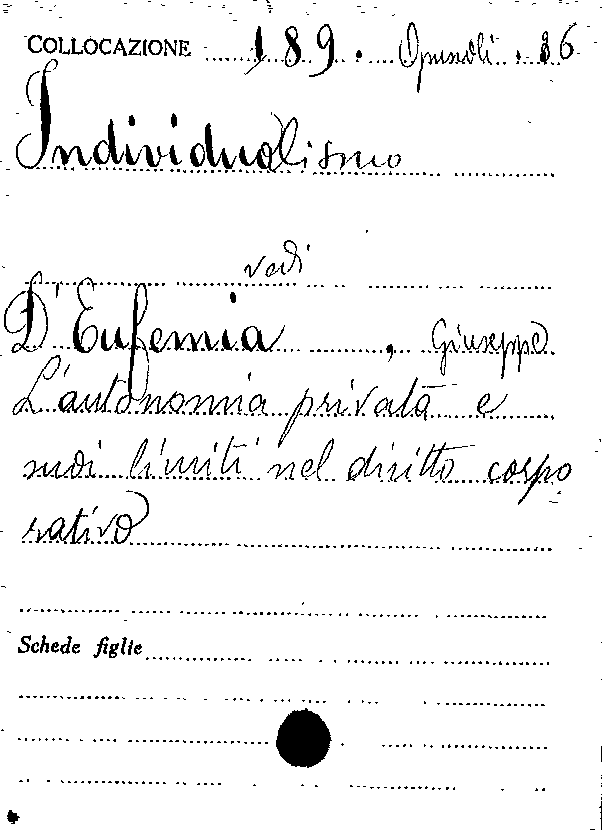 COLLOCAZIONE 189. Opuscoli. 36
Individualismo
vedi
D'Eufemia, Giuseppe
L'autonomia privata e
suoi limiti nel diritto corpo
rativo
Schede figlie